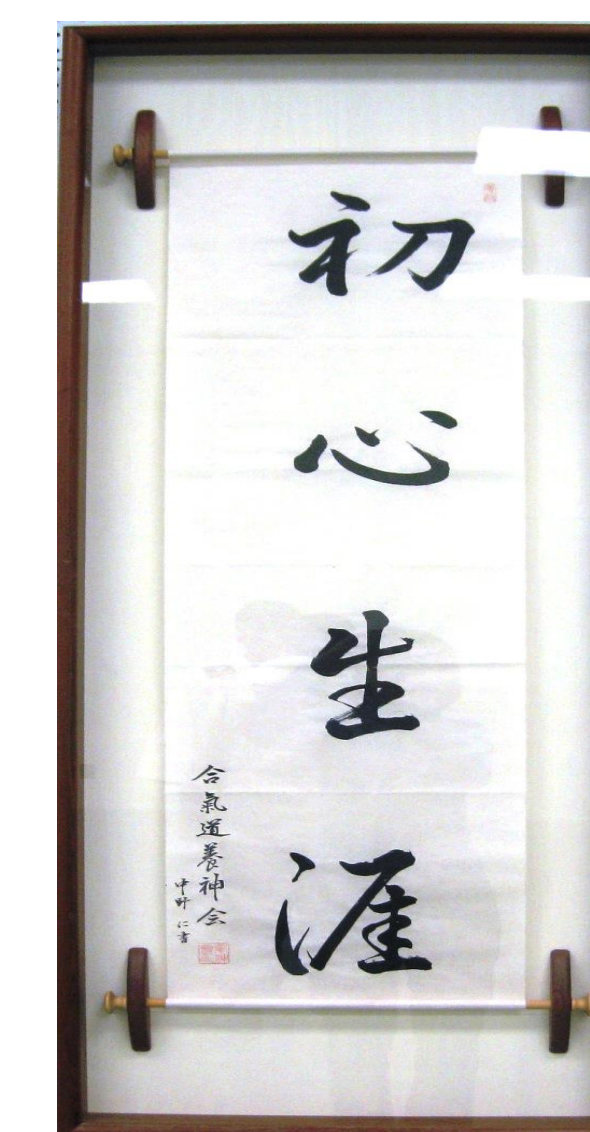 初心生涯
合氣道養神会
中野 仁書